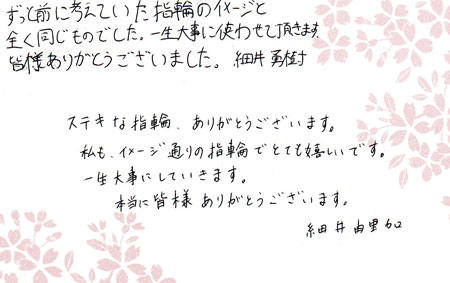 ずっと前に考えていた指輪のイメージと
全く同じものでした。一生大事に使わせて頂きます
皆様ありがとうございました。細井勇樹
ステキな指輪、ありがとうございます。
私も、イメージ通りの指輪でとても嬉しいです。
一生大事にしていきます。
本当に皆様ありがとうございます。
細井由里加